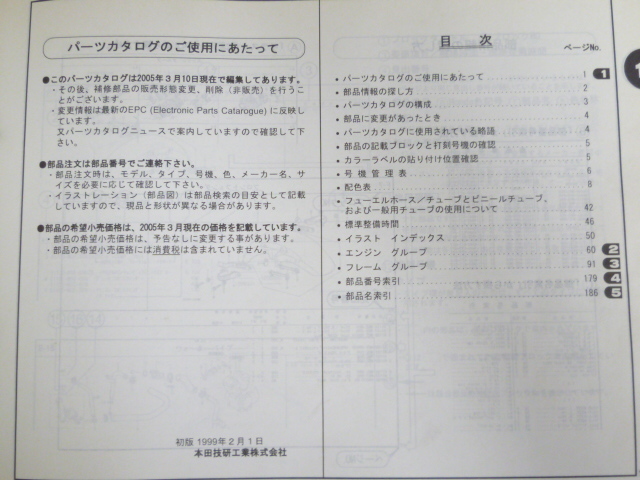 パーツカタログのご使用にあたって
●このパーツカタログは2005年3月10日現在で編集してあります。
・その後、補修部品の販売形態変更、削除(非販売)を行うこ
とがございます。
・変更情報は最新のEPC (Electronic Parts Catarogue) に反映し
ています。
又パーツカタログニュースで案内していますので確認して下
さい。
●部品注文は部品番号でご連絡下さい。
・部品注文時は、モデル、タイプ、号機、色、メーカー名、サ
イズを必要に応じて確認して下さい。
・イラストレーション(部品図)は部品検索の目安として記載
していますので、現品と形状が異なる場合があります。
●部品の希望小売価格は、2005年3月現在の価格を記載しています。
・部品の希望小売価格は、予告なしに変更する事があります。
・部品の希望小売価格には消費税は含まれていません。
初版 1999年2月1日
本田技研工業株式会社
目 次
ページNo.
・パーツカタログのご使用にあたって 1 1
・部品情報の探し方 2
・パーツカタログの構成 3
・部品に変更があったとき 4
・パーツカタログに使用されている略語 4
・部品の記載ブロックと打刻号機の確認 5
・カラーラベルの貼り付け位置確認 5
・号機管理表 6
・配色表 8
・フューエルホース/チューブとビニールチューブ、
および一般用チューブの使用について 42
・標準整備時間 46
・イラスト インデックス 50
・エンジン グループ 60 2
・フレーム グループ 91 3
・部品番号索引 179 4
・部品名索引 186 5
1